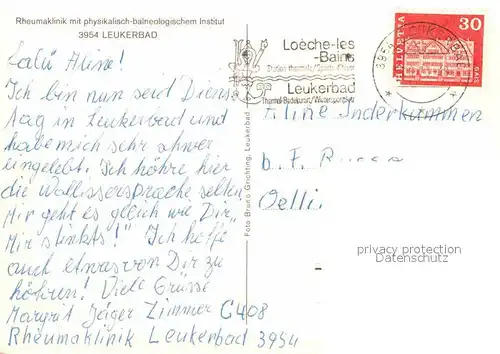 Rheumaklinik mit physikalisch-balneologischem Institut
3954 LEUKERBAD
Salü Aline!
Ich bin nun seid Diens
tag in Leukerbad und
habe mich sehr schwer
eingelebt. Ich höhre hier
die Wallissersprache selten.
Mir geht es gleich wie Dir,
"Mir stinkts!" Ich hoffe
auch etwas von Dir zu
höhren! Viele Grüsse
Margrit Jäger Zimmer C408
Rheumaklinik Leukerbad 3954
Foto Bruno Grichting, Leukerbad
Loèche-les
-Bains
Station thermale/Sports d'hiver
Leukerbad
Thermal-Badekurort/Wintersportplatz
3954 LEUKERBAD
HELVETIA
30
Aline Inderkummen
b. F.
Oelli
privacy protection